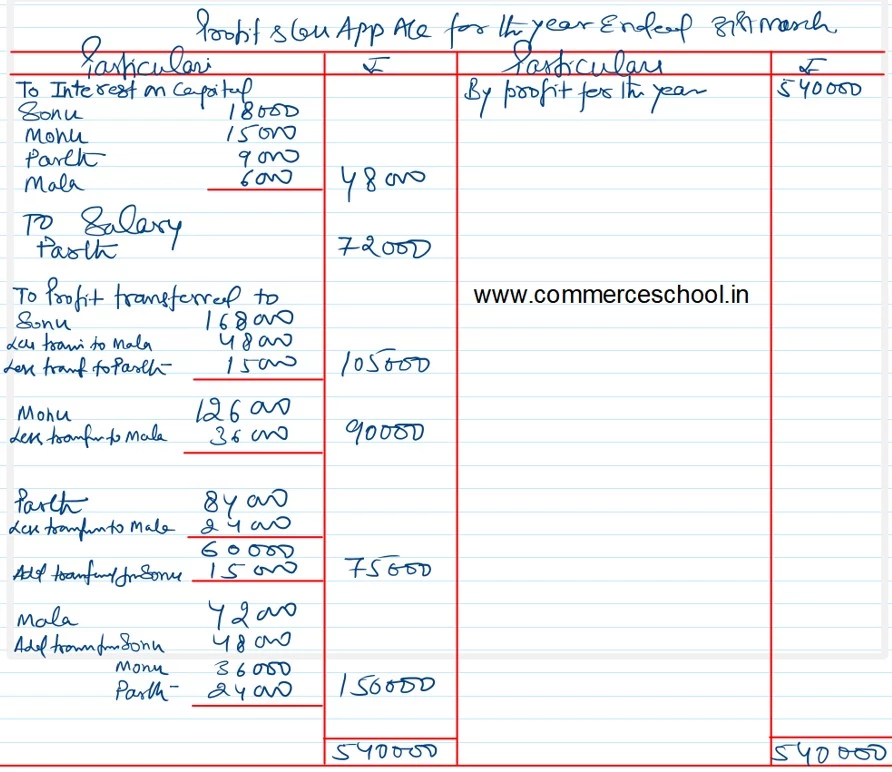 Profit & Loss App A/c for the year Ended 31st March
Particulars ₹ Particulars ₹
To Interest on Capital By profit for the year 540000
Sonu 18000
Monu 15000
Parth 9000
Mala 6000 48000
To Salary
Parth 72000
To Profit transferred to
www.commerceschool.in
Sonu 168000
Less trans to Mala 48000
Less tranf to Parth 15000 105000
Monu 126000
Less tranfer to Mala 36000 90000
Parth 84000
Less tranfer to Mala 24000
60000
Add tranfer from Sonu 15000 75000
Mala 42000
Add from Sonu 48000
Monu 36000
Parth 24000 150000
540000 540000